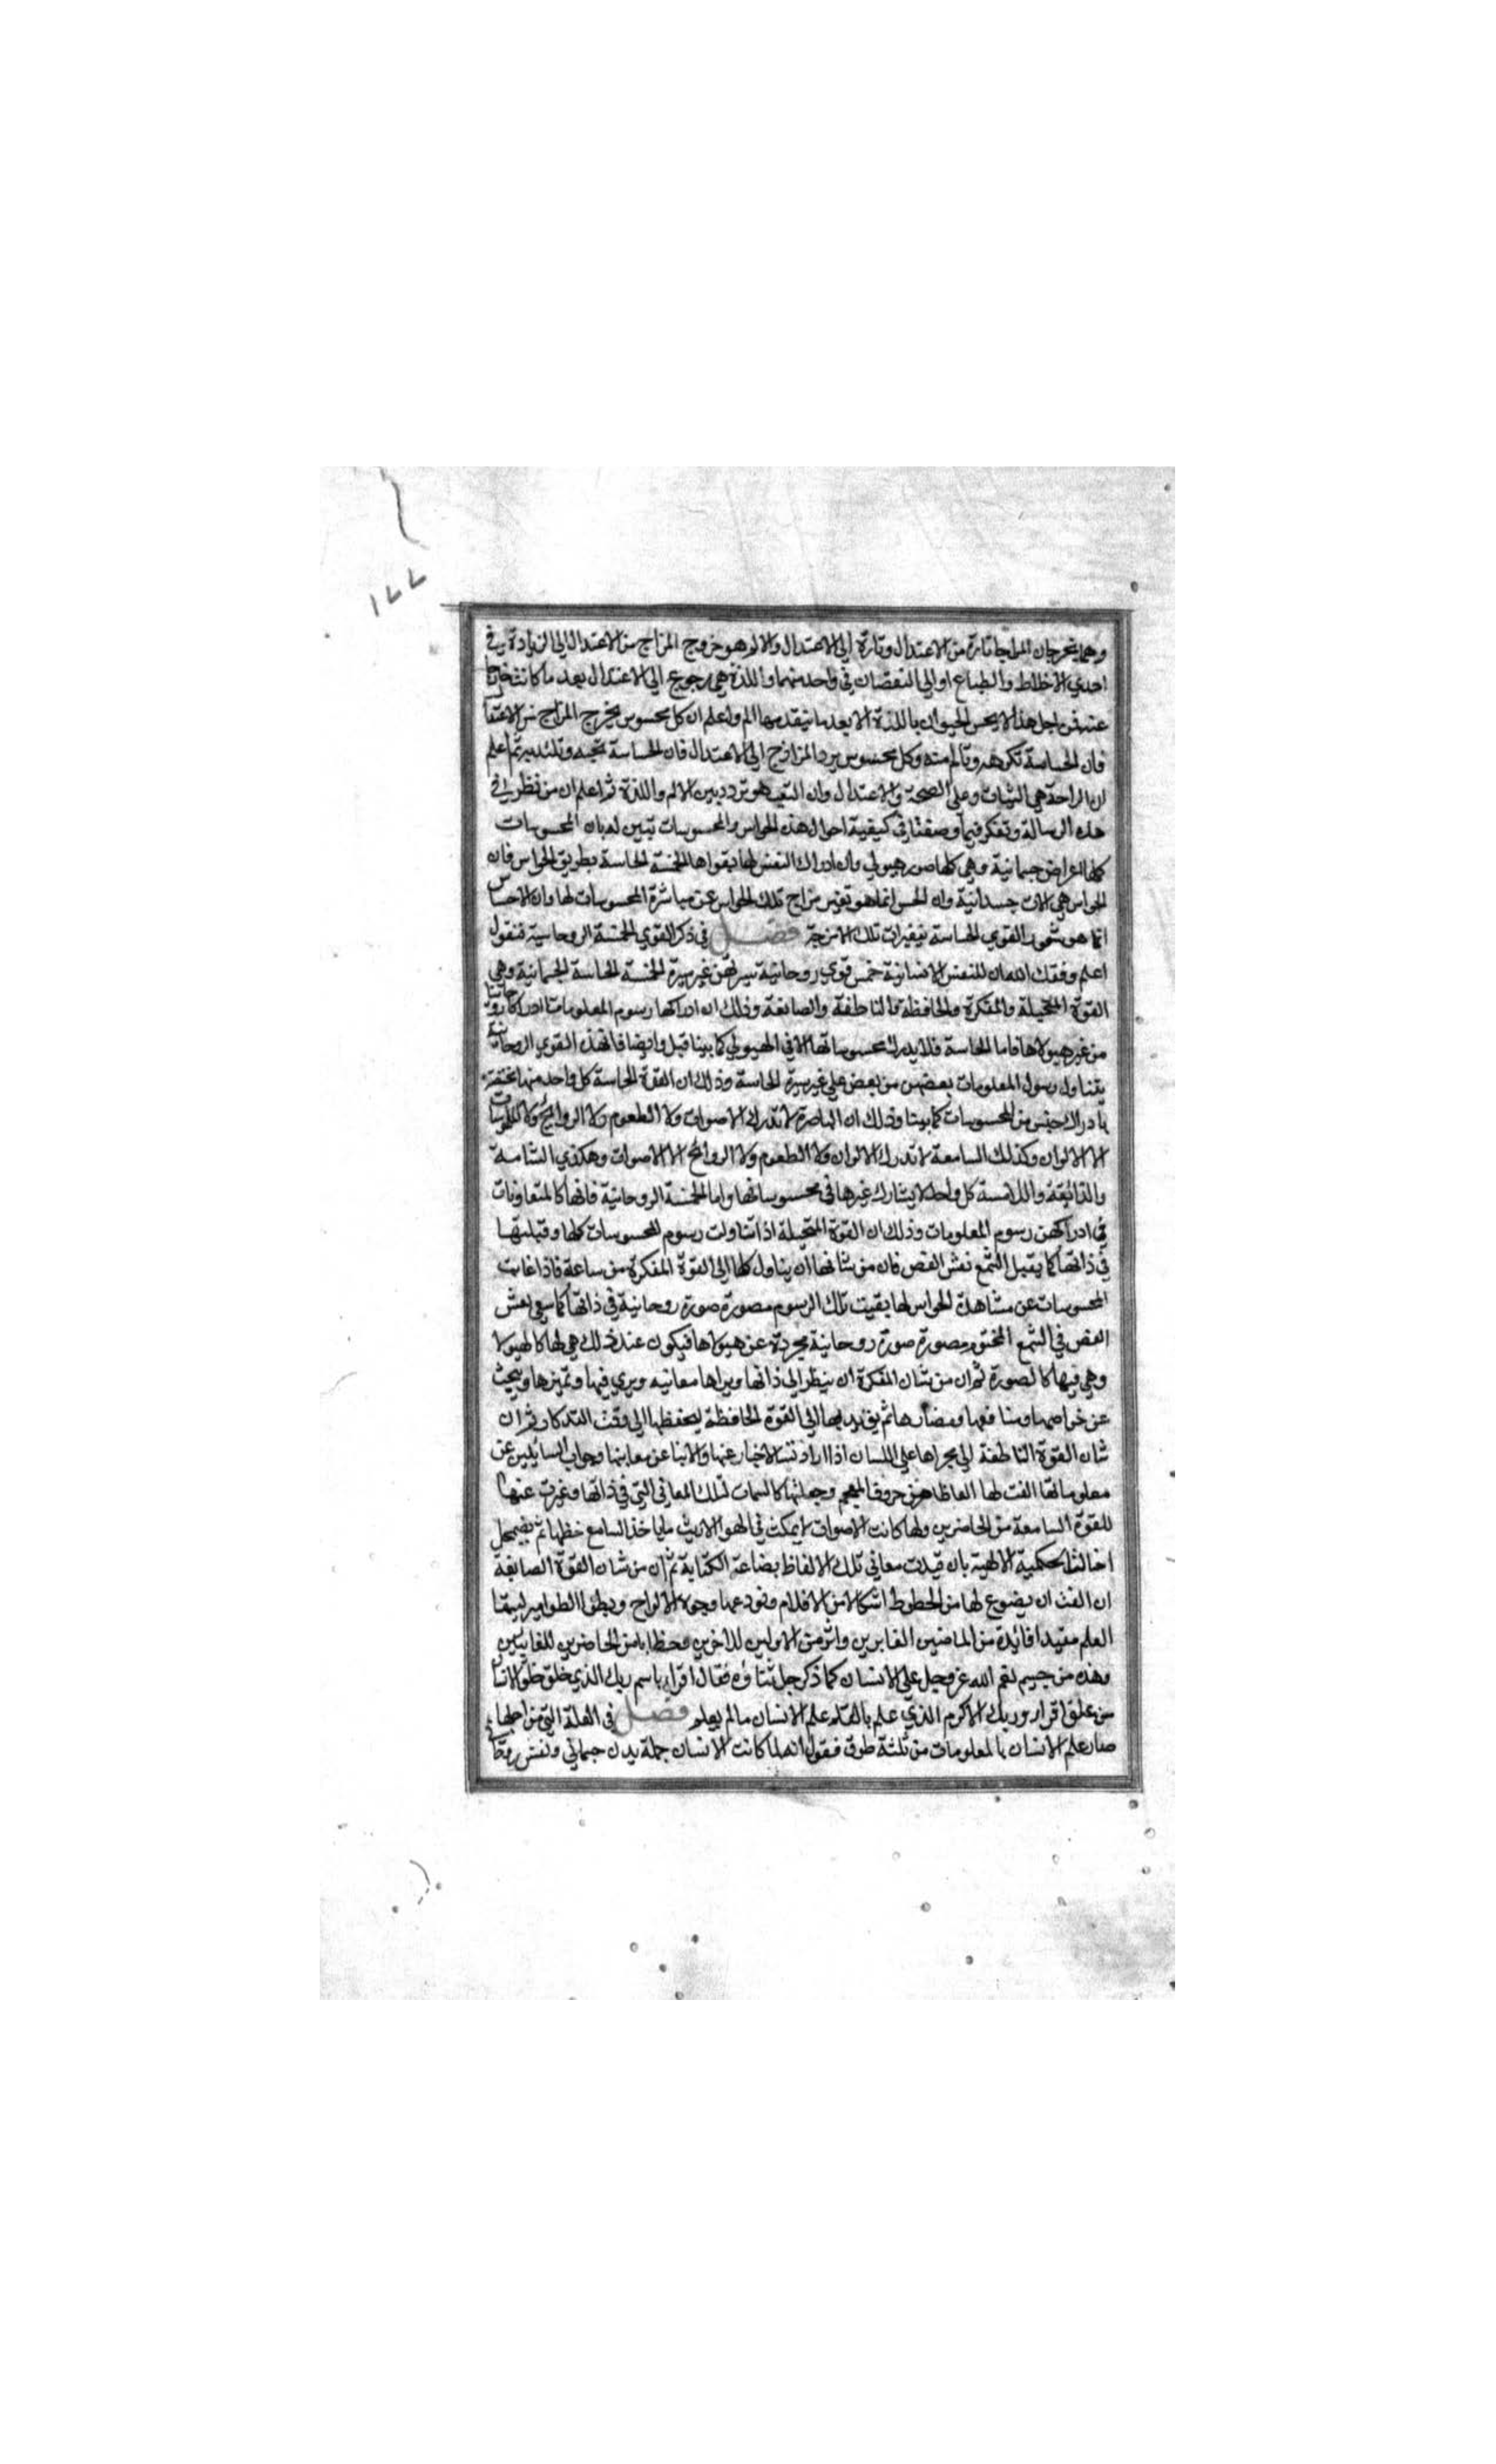 ١٧٧
وهما يخرجان المزاج تارة من الاعتدال وتارة الي الاعتدال والالم هو خروج المزاج من الاعتدال الي الزيادة في
احدي الاخلاط والطبائع او الي النقصان في واحد منهما واللذة هي رجوع الي الاعتدال بعد ما كانت خارجا
عنه فمن اجل هذا لا يحس الحيوان باللذة الا بعد ما يتقدمها الم واعلم ان كل محسوس يخرج المزاج من الاعتدال
فان الحساسة تكرهه وتألم منه وكل محسوس يرد المزاج الي الاعتدال فان الحساسة تحبه وتلتذ به ثم اعلم
ان الراحة هي الثبات وعلي الصحة والاعتدال وان التعب هو تردد بين الالم واللذة ثم اعلم ان من نظر في
هذه الرسالة وتفكر فيما وصفنا في كيفية احوال هذه الحواس والمحسوسات تبين له بان المحسوسات
كلها اعراض جسمانية وهي كلها صور هيولي وان ادراك النفس لها بقواها الخمسة الحاسة بطريق الحواس فان
الحواس هي الات جسدانية وان الحس انما هو تغير مزاج تلك الحواس عن مباشرة المحسوسات لها وان الاحساس
انما هو شعور القوي الحساسة بتغيرات تلك الامزجة فصل في ذكر القوي الخمسة الروحانية فنقول
اعلم وفقك الله ان للنفس الانسانية خمس قوي روحانية سيرتهن غير سيرة الخمسة الحاسة الجسمانية وهي
القوة المتخيلة والمفكرة والحافظة والناطقة والصانعة وذلك ان ادراكها رسوم المعلومات ادراكا روحانيا
من غير هيولاها فاما الحاسة فلا يدرك محسوساتها الا في الهيولي كما بينا قبل وايضا فان هذه القوي الروحانية
يتناول رسول المعلومات بعضهن من بعض علي غير سيرة الحاسة وذلك ان القوة الحاسة كل واحد منها مختصة
بادراك جنس من المحسوسات كما بينا وذلك ان الباصرة لا تدرك الاصوات ولا الطعوم ولا الروائح ولا الملموسات
الا الالوان وكذلك السامعة لا تدرك الالوان ولا الطعوم ولا الروائح الا الاصوات وهكذي الشامة
والذائقة واللامسة كل واحد لا يشارك غيرها في محسوساتها واما الخمسة الروحانية فانها كالمتعاونات
في ادراكهن رسوم المعلومات وذلك ان القوة المتخيلة اذا تناولت رسوم المحسوسات كلها وقبلتها
في ذاتها كما يقبل الشمع نقش الفص فان من شانها ان يناول كلها الي القوة المفكرة من ساعة فاذا غابت
المحسوسات عن مشاهدة الحواس لها بقيت تلك الرسوم مصورة صورة روحانية في ذاتها كما يبقي نقش
الفص في الشمع المختوم مصورة صورة روحانية مجردة عن هيولاها فيكون عند ذلك هي لها كالهيولا
وهي فيها كالصورة ثم ان من شان المفكرة ان ينظر الي ذاتها ويراها معانيه ويري فيها وتميزها ويبحث
عن خواصها ومنافعها ومضارها ثم يؤديها الي القوة الحافظة ليحفظها الي وقت التذكار ثم ان
شان القوة الناطقة الي مجراها علي اللسان اذا ارادت الاخبار عنها والانبا عن معانيها وجواب السائلين عن
معلوماتها الفت لها الفاظا من حروف المعجم وجعلتها كالسمات لتلك المعاني التي في ذاتها وعبرت عنها
للقوة السامعة من الحاضرين ولما كانت الاصوات لا يمكث في الهوا الا ريث ما ياخذ السامع حظها ثم يضمحل
احتالت الحكمية الالهية بان قيدت معاني تلك الالفاظ بصناعة الكتابة ثم ان من شان القوة الصانعة
ان الفت ان يصوغ لها من الخطوط اشكالا من الاقلام وتودعها وجوه الالواح وبطون الطوامير ليبقا
العلم مفيدا فائدة من الماضين الغابرين واثر من الاولين للاخرين وخطابا من الحاضرين للغائبين
وهذه من جسيم نعم الله عز وجل علي الانسان كما ذكر جل ثناؤه فقال اقراء باسم ربك الذي خلق خلق الانسان
من علق اقرا وربك الاكرم الذي علم بالقلم علم الانسان مالم يعلم فصل في العلة التي من اجلها
صار علم الانسان بالمعلومات من ثلثة طرق فنقول انه لما كانت الانسان جملة بدن جسماني ونفس روحاني